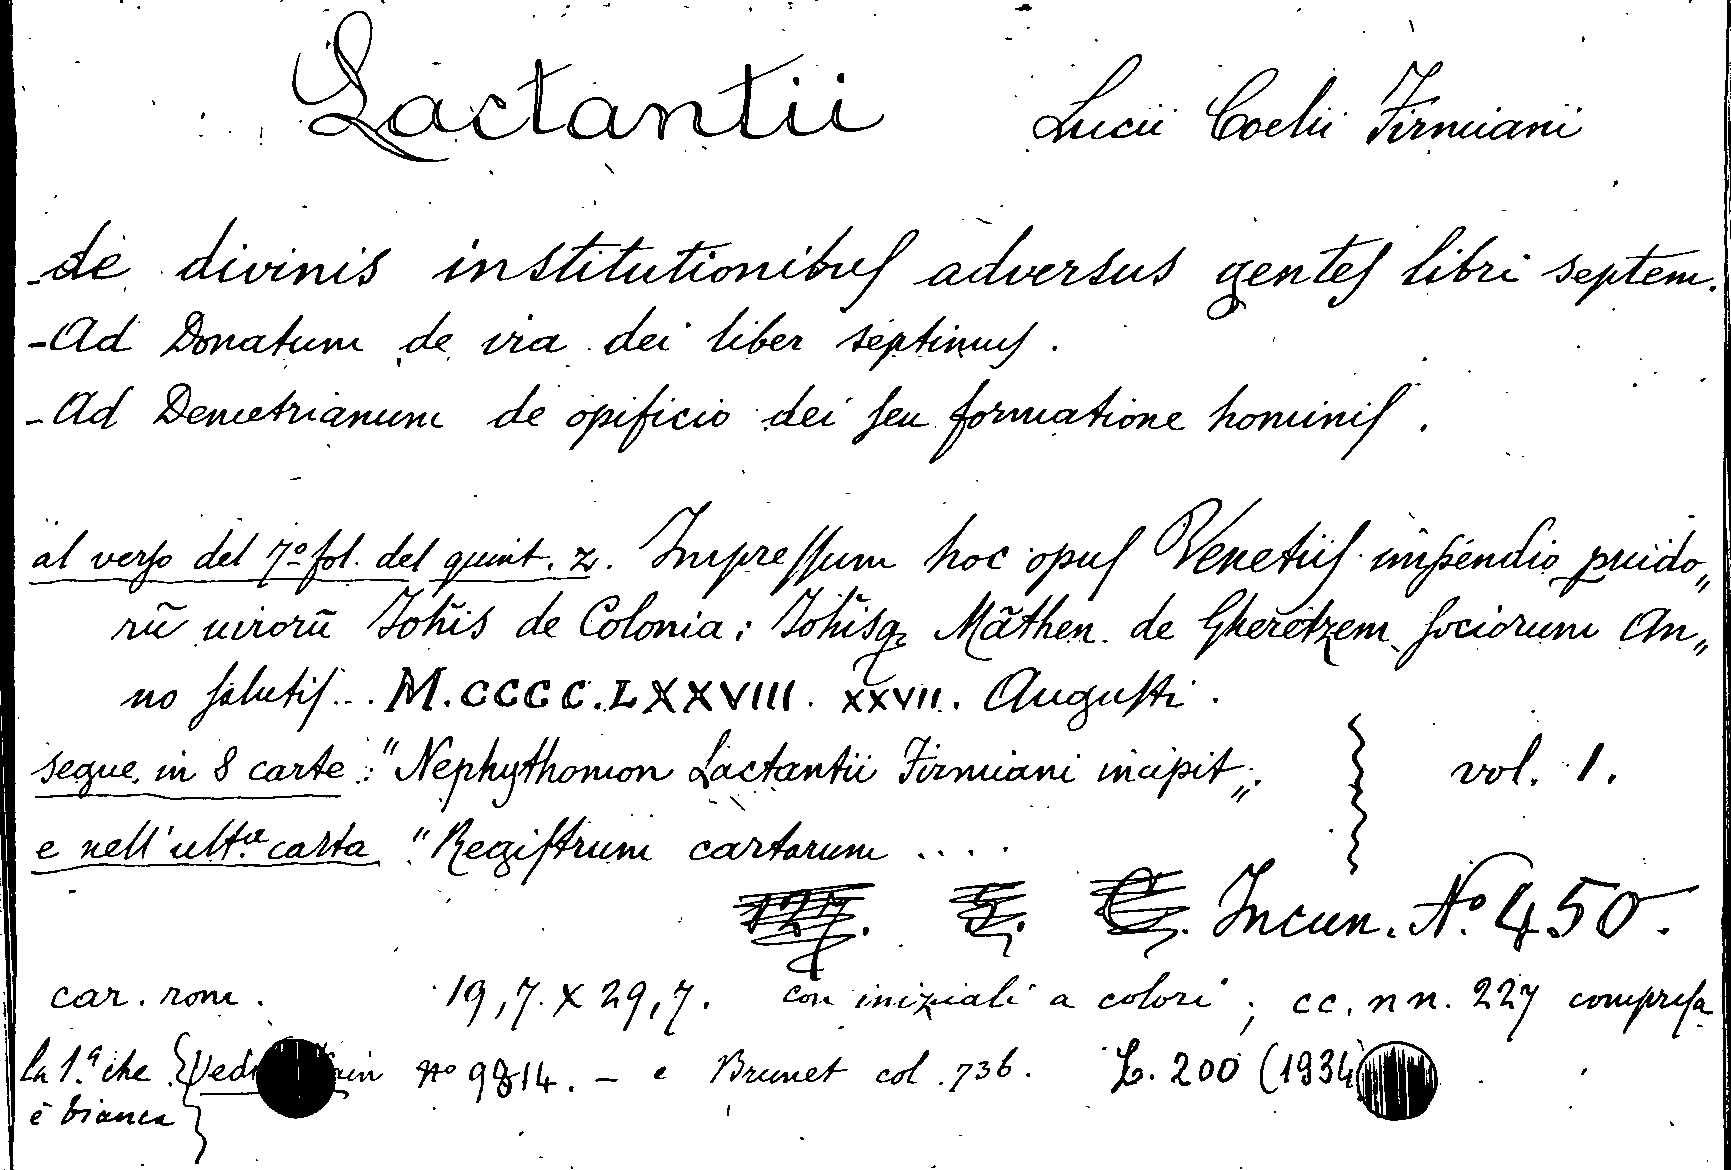 Lactantii Lucii Coelii Firmiani
-de divinis institutionibuſ adversus genteſ libri septem.
-Ad Donatum de ira dei liber septimuſ.
-Ad Demetrianum de opificio dei ſeu formatione hominiſ.
al verſo del 7º fol. del quint. z. Impreſſum hoc opuſ Venetiiſ impendio puido„
rũ uirorũ Johĩs de Colonia: Johĩsqꝫ Mãthen. de Gheretzem ſociorum An„
no ſalutiſ... M.CCCC.LXXVIII. XXVII. Auguſti.
segue in 8 carte: "Nephythomon Lactantii Firmiani incipit„. vol. 1.
e nell'ultª carta "Regiſtrum cartarum ....
Incun. Nº 450.
car. rom. 19,7 X 29,7. con iniziali a colori; cc. nn. 227 compreſa
la 1.ª che {Vedi nº 9814. - e Brunet col. 736. L. 200 (1934
è bianca}